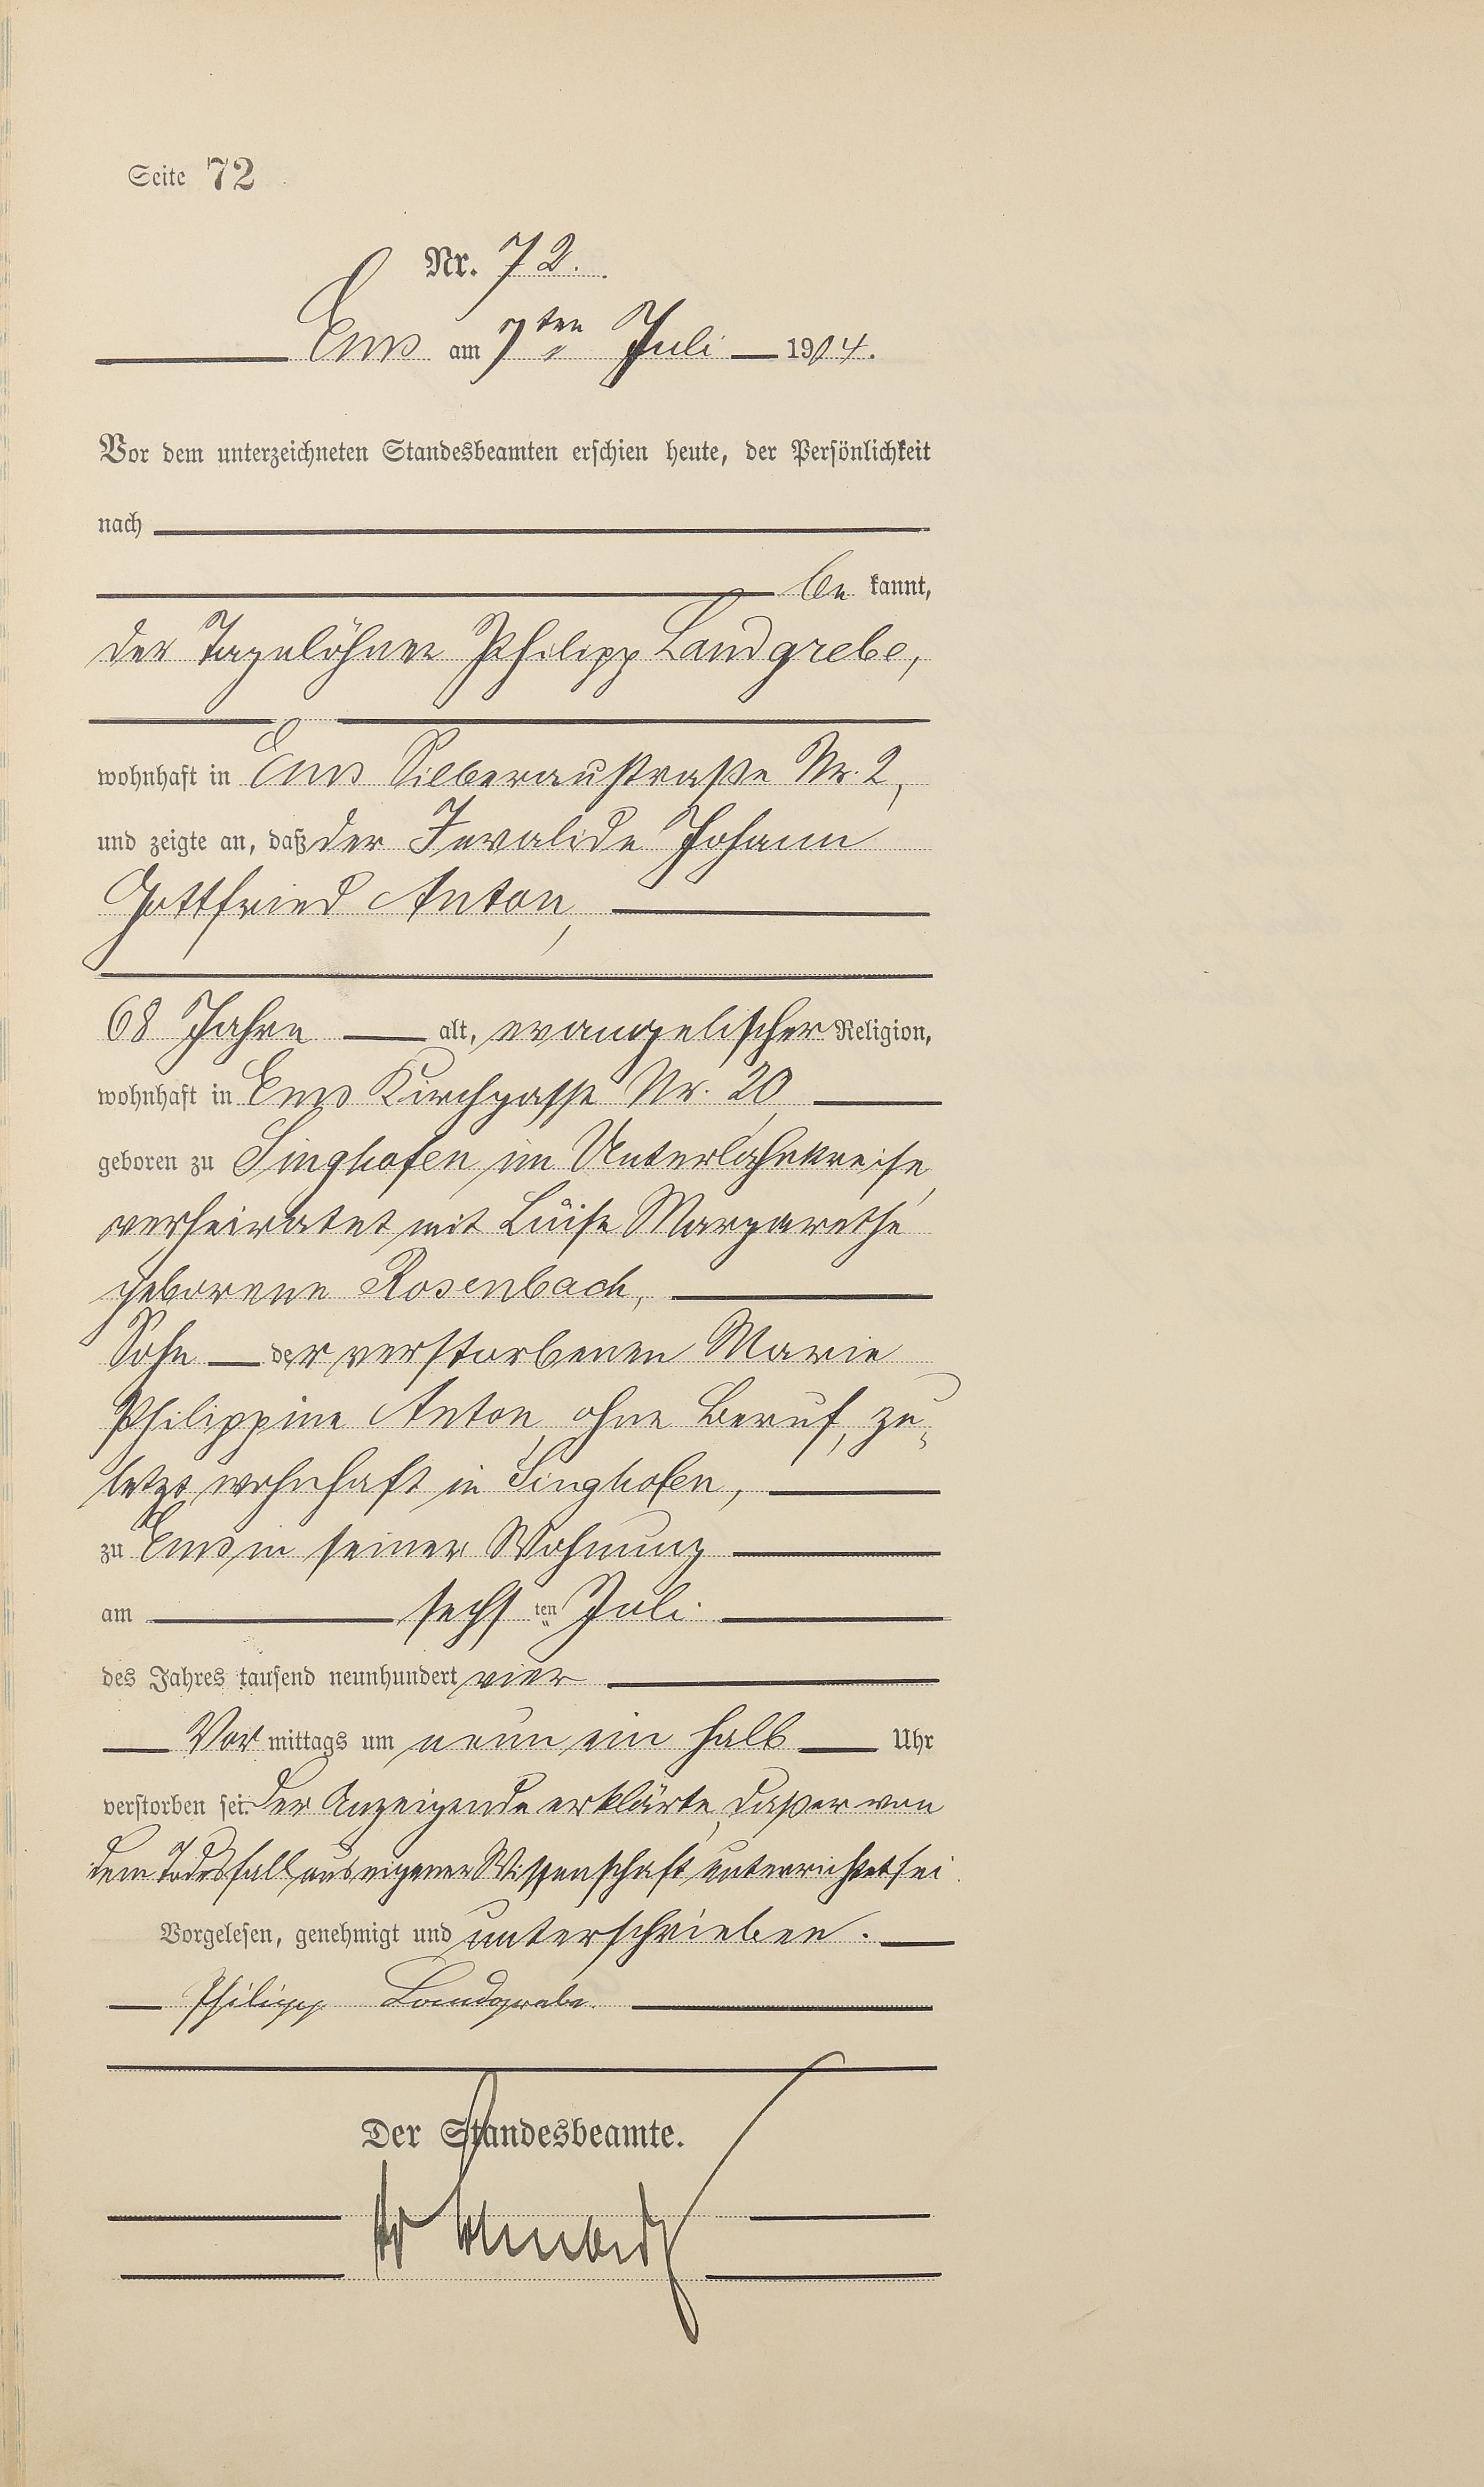 Seite 72
Nr. 72.
Ems am 7ten Juli 1904.
Vor dem unterzeichneten Standesbeamten erschien heute, der Persönlichkeit
nach
be kannt,
der Tagelöhner Philipp Landgrebe,
wohnhaft in Ems Silberaustraße Nr. 2,
und zeigte an, daß der Invalide Johann
Gottfried Anton,
68 Jahre alt, evangelischer Religion,
wohnhaft in Ems Kirchgasse Nr. 20,
geboren zu Singhofen im Unterlahnkreise,
verheiratet mit Luise Margarethe
geborene Rosenbach,
Sohn der verstorbenen Marie
Philippine Anton, ohne Beruf, zu-
letzt wohnhaft in Singhofen,
zu Ems in seiner Wohnung
am sechsten Juli
des Jahres tausend neunhundert vier
Vor mittags um neun ein halb Uhr
verstorben sei. Der Anzeigende erklärte, daß er von
dem Todesfall aus eigener Wissenschaft unterrichtet sei.
Vorgelesen, genehmigt und unterschrieben.
Philipp Landgrebe.
Der Standesbeamte.